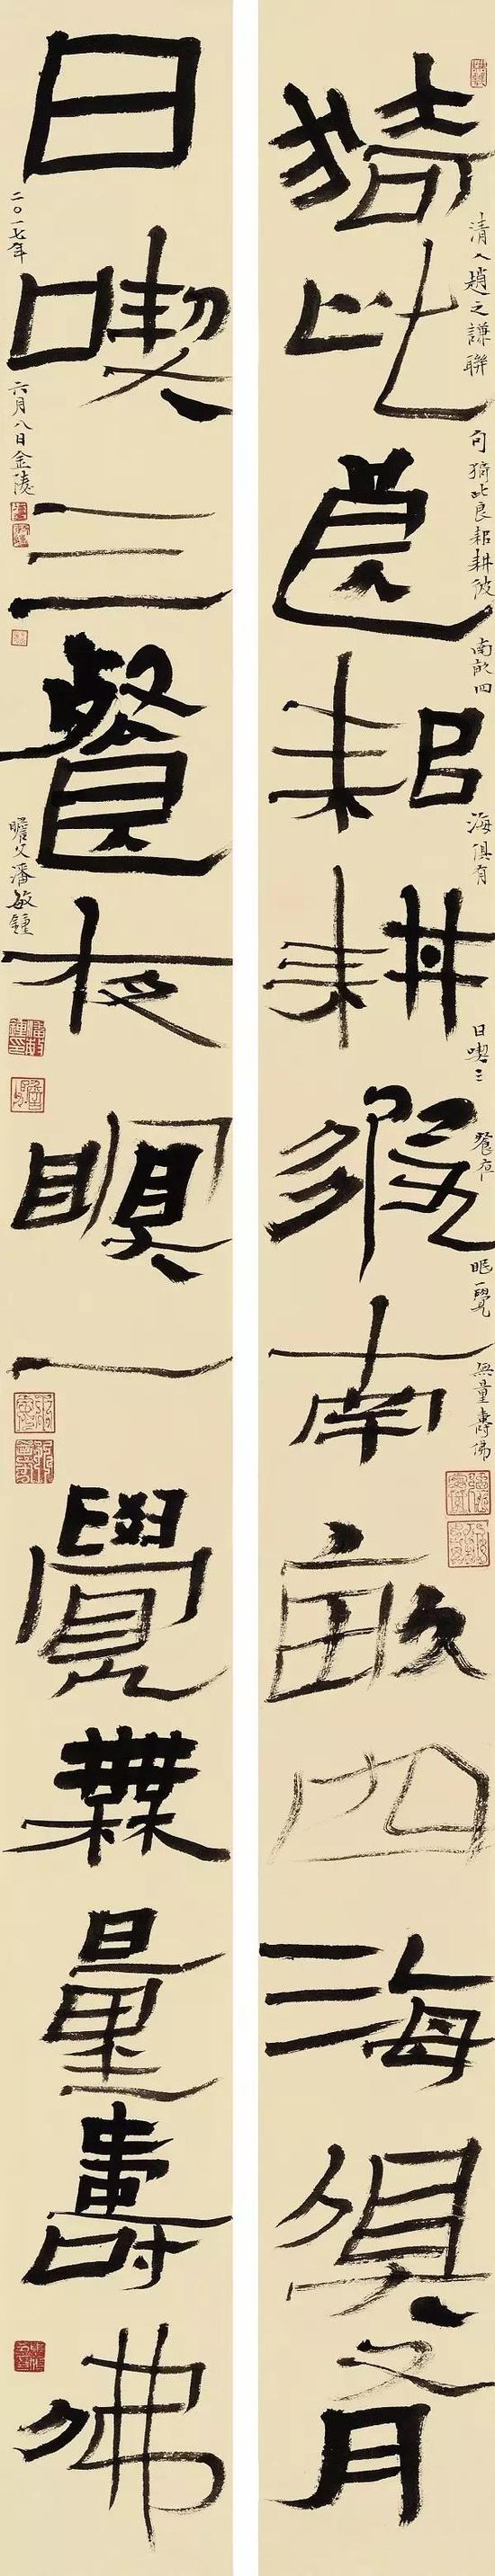 猗此良耜耕彼南畝四海俱有
日喫三餐夜瞑一覺無量壽佛
清人趙之謙聯句猗此良耜耕彼南畝四海俱有日喫三餐夜眠一覺無量壽佛
二〇一七年六月八日金陵瞻父潘敏鍾